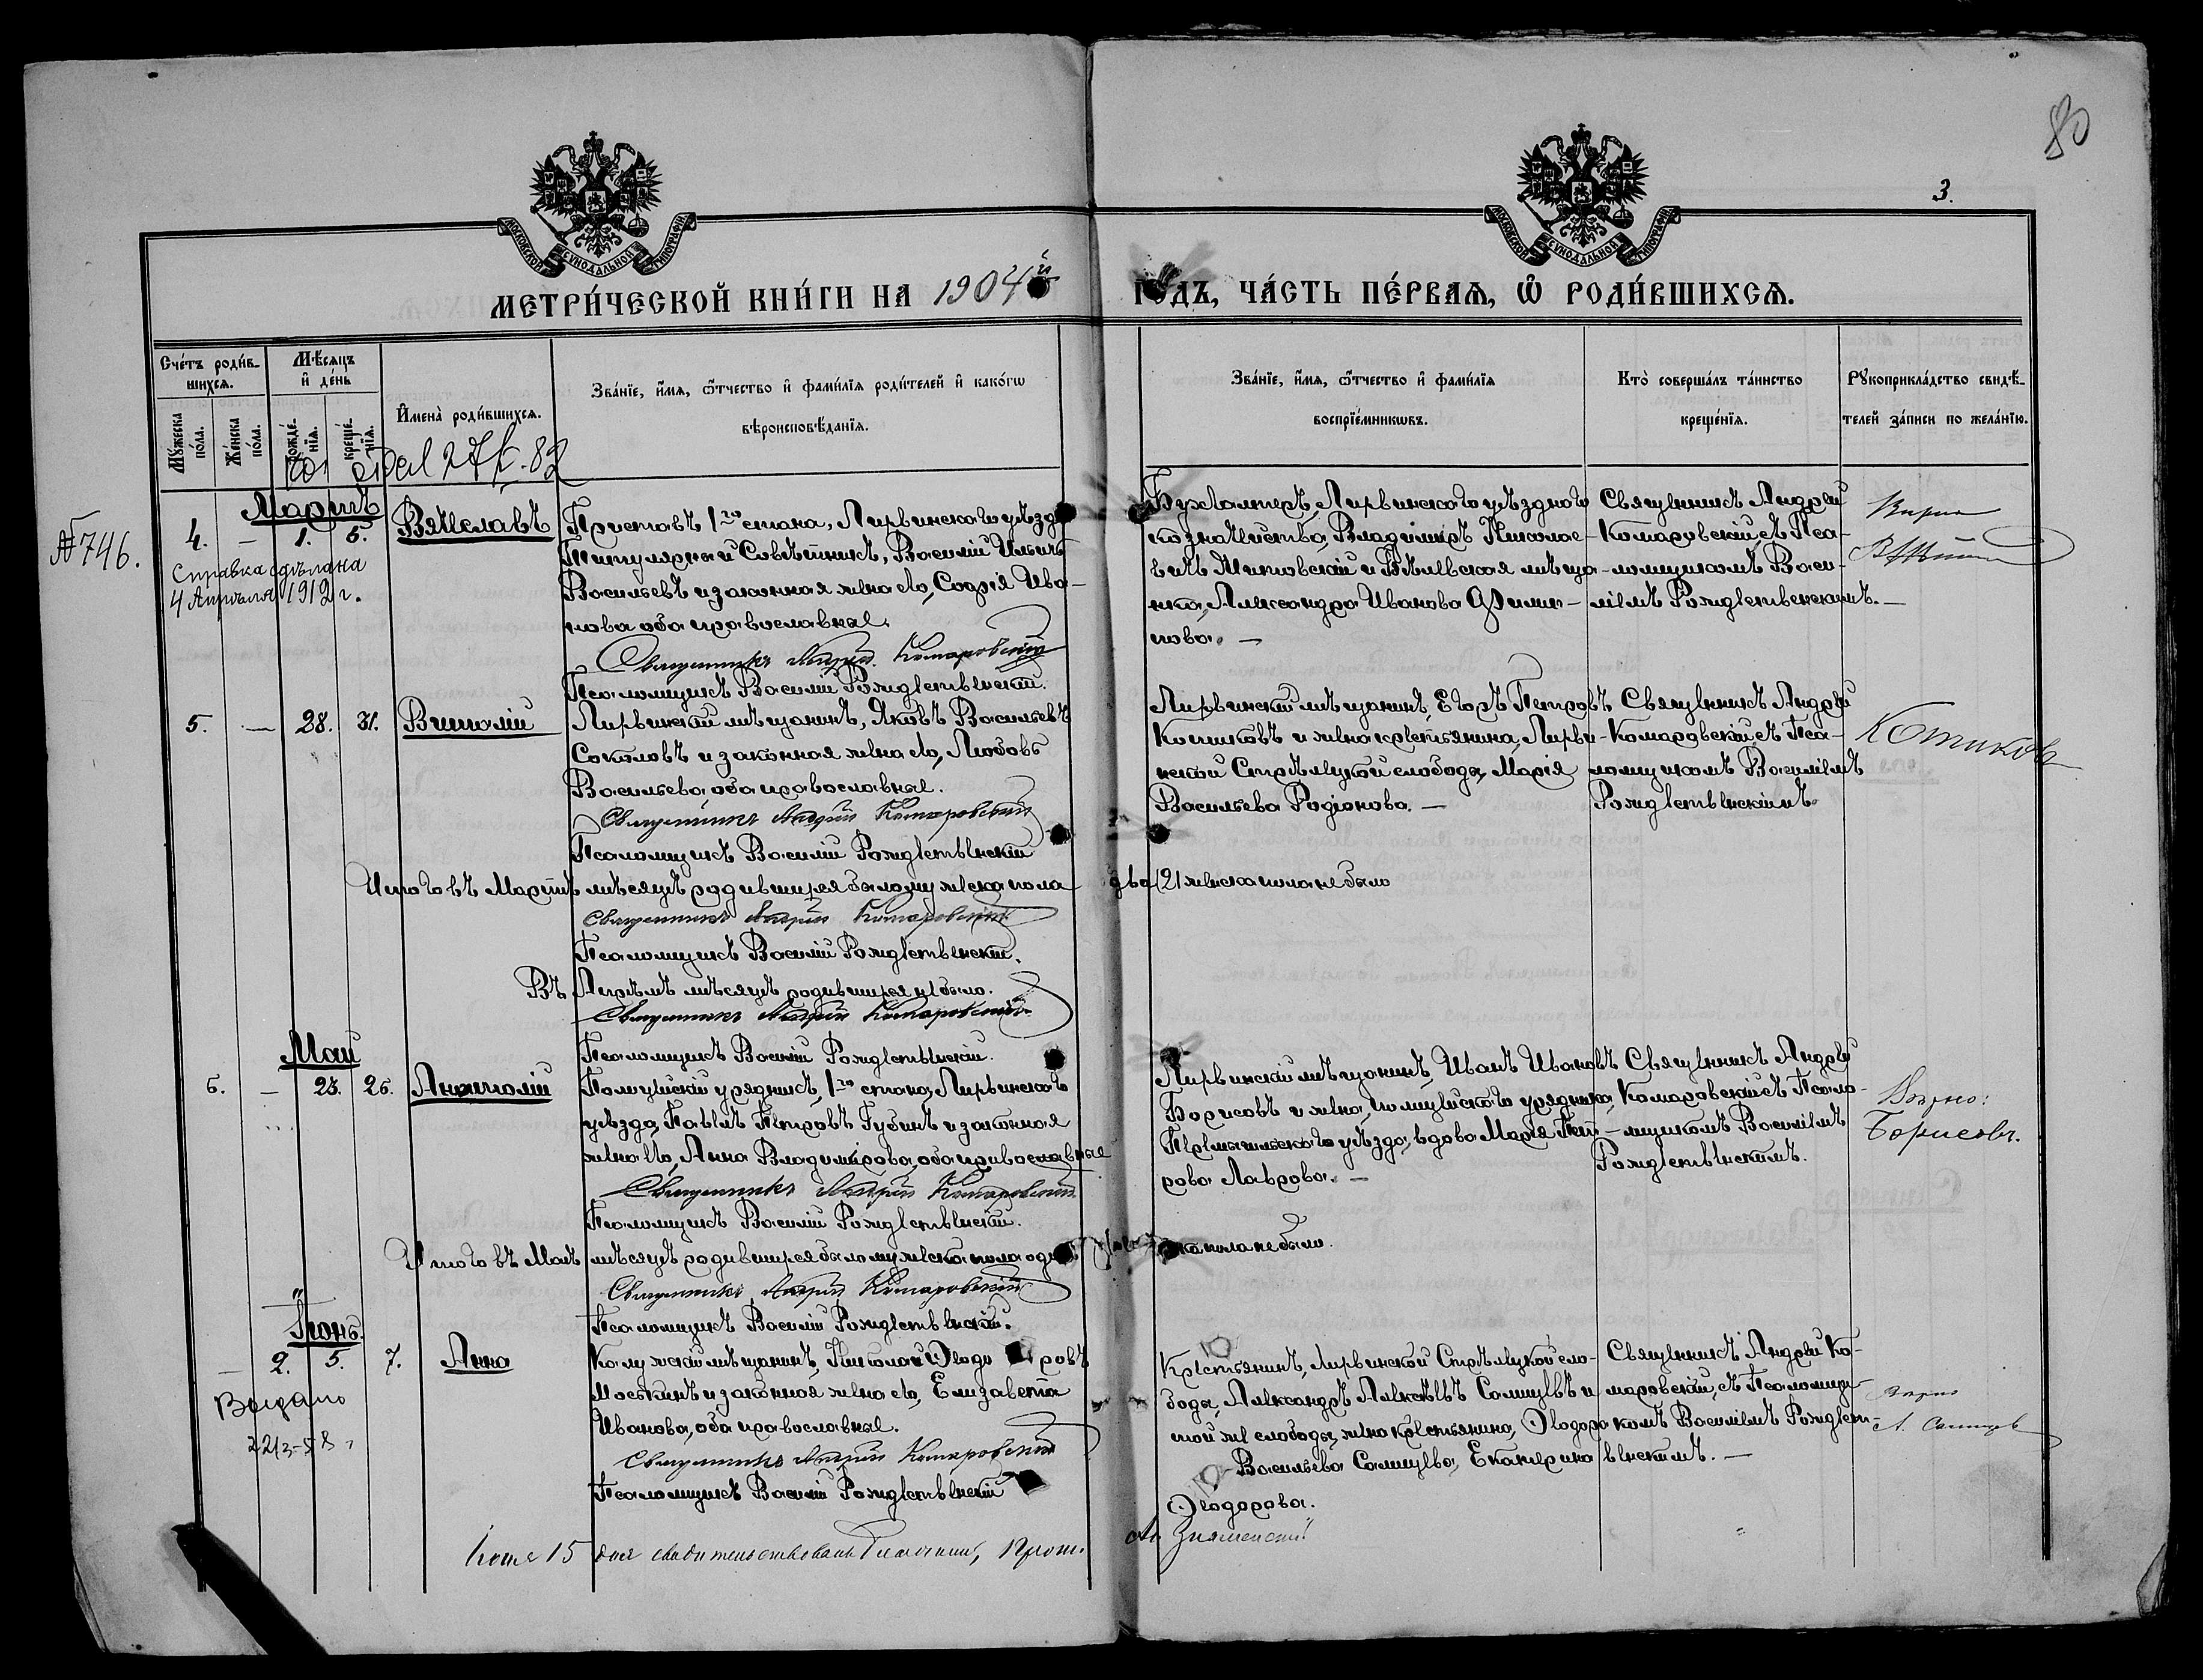 80
3.
МОСКОВСКОЙ СѴНОДАЛЬНОЙ ТИПОГРАФІИ
МОСКОВСКОЙ СѴНОДАЛЬНОЙ ТИПОГРАФІИ
МЕТРИ́ЧЕСКОЙ КНИ́ГИ НА 1904й
ГОДЪ, ЧА́СТЬ ПЕ́РВАЯ, Ѡ҆ РОДИ́ВШИХСѦ.
Сче́тъ роди́в-
шихсѧ.
Мѣ́сѧцъ
и҆ де́нь
Мꙋ́жеска по́ла.
Же́нска по́ла.
рожде́-нїѧ.
креще́-нїѧ.
И҆мена̀ роди́вшихсѧ.
Зва́нїе, и҆́мѧ, ѻ҆́тчество и҆ фами́лїѧ роди́телей и҆ како́гѡ
вѣроисповѣ́данїѧ.
Зва́нїе, и҆́мѧ, ѻ҆́тчество и҆ фами́лїѧ
воспрїе́мникѡвъ.
Кто̀ соверша́лъ та́инство
креще́нїѧ.
Рꙋкоприкла́дство свидѣ́-
телей за́писи по жела́нїю.
Мартъ
№ 746.
4. — 1. 5. Вячеславъ
Справка сдѣлана
4 Апрѣля 1912 г.
Приставъ 1го стана, Лихвинскаго уѣзда
Титулярный Совѣтникъ, Василій Ильичъ
Васильевъ и законная жена его, Софія Ива-
нова оба православные.
Священникъ Андрей Комаровскій
Псаломщикъ Василій Рождественскій.
Бухгалтеръ, Лихвинскаго уѣзднаго
казначейства, Владиміръ Николае-
вичъ и Бѣлевская мѣща-
нка, Александра Иванова Филип-
пова. —
Священникъ Андрей
Комаровскій, съ Пса-
ломщикомъ Васи-
ліемъ Рождественскимъ. —
5. — 28. 31. Виталій
Лихвинскій мѣщанинъ, Яковъ Васильевъ
Соколовъ и законная жена его, Любовь
Васильева оба православные.
Священникъ Андрей Комаровскій
Псаломщикъ Василій Рождественскій
Лихвинскій мѣщанинъ, Егоръ Петровъ
Котиковъ и жена крестьянина, Лихви-
нской Стрѣлецкой слободы, Марія
Васильева Родіонова. —
Священникъ Андрей
Комаровскій, съ Пса-
ломщикомъ Василіемъ
Рождественскимъ.
Котиковъ
Итого въ Мартѣ мѣсяцѣ родившихся было мужеска пола два (2) женска пола не было
Священникъ Андрей Комаровскій
Псаломщикъ Василій Рождественскій.
Въ Апрѣлѣ мѣсяцѣ родившихся не было.
Священникъ Андрей Комаровскій
Псаломщикъ Василій Рождественскій.
Май
6. — 23. 26. Анатолій
Полицейскій урядникъ, 1го стана, Лихвинскаго
уѣзда, Павелъ Петровъ Губинъ и законная
жена его, Анна Владимірова, оба православные
Священникъ Андрей Комаровскій
Псаломщикъ Василій Рождественскій.
Лихвинскій мѣщанинъ, Иванъ Ивановъ
Борисовъ и жена, полицейскаго урядника,
Перемышльскаго уѣзда, вдова Марія Пет-
рова Лаврова. —
Священникъ Андрей
Комаровскій съ Псало-
мщикомъ Василіемъ
Рождественскимъ.
Борисовъ.
Итого въ Маѣ мѣсяцѣ родившихся было мужеска пола
ка пола не было.
Священникъ Андрей Комаровскій
Псаломщикъ Василій Рождественскій.
Іюнь.
— 2. 5. 7. Анна
Выдано
Калужскій мѣщанинъ, Николай
Моськинъ и законная жена его, Елизавета
Иванова, оба православные.
Священникъ Андрей Комаровскій
Псаломщикъ Василій Рождественскій
Крестьянинъ, Лихвинской Стрѣлецкой сло-
боды, Александръ Алексѣевъ и
той же слободы, жена крестьянина, Ѳеодора
Васильева Екатерина
Ѳеодорова.
Священникъ Андрей Ко-
маровскій, съ Псаломщи-
комъ Василіемъ Рождест-
венскимъ. —
Знаменскій